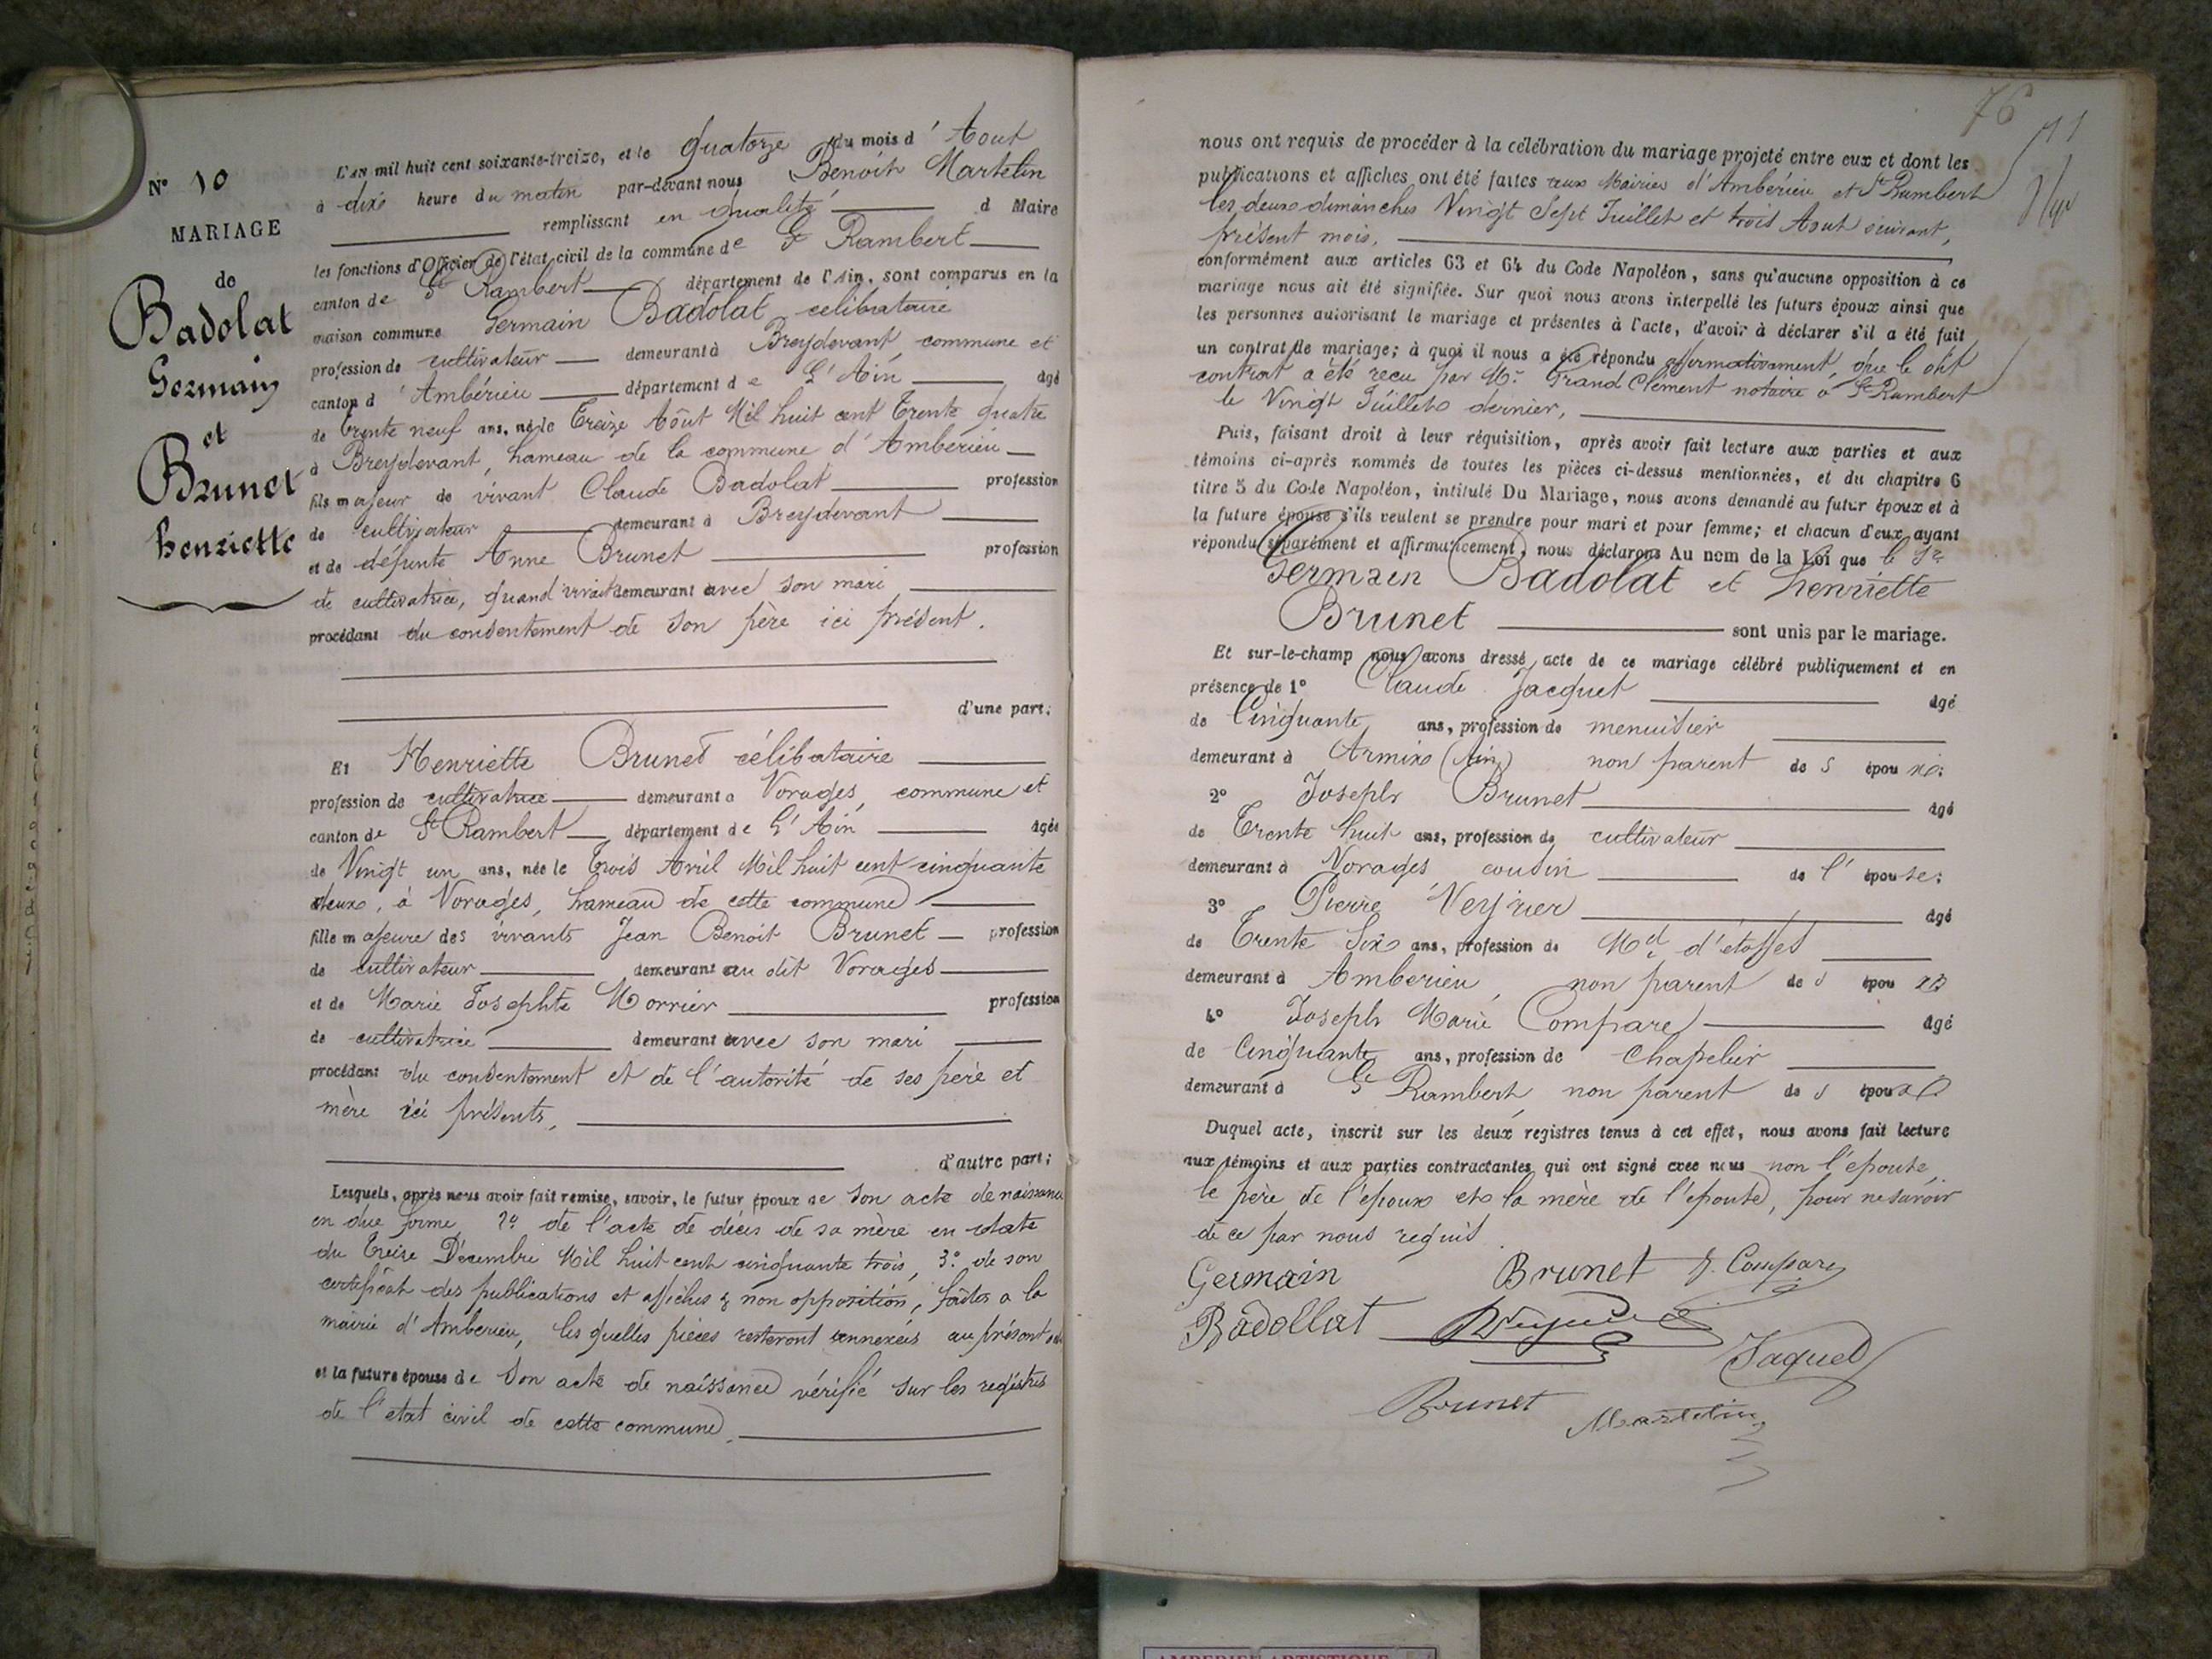 N° 10
MARIAGE
de
Badolat
Germain
et
Brunet
henriette
L'AN mil huit cent soixante-treize, et le quatorze du mois d'Aout
à dix heure du matin par-devant nous Benoit Martelin
remplissant en qualité d Maire
les fonctions d'Officier de l'état civil de la commune de St Rambert
canton de St Rambert département de l'Ain, sont comparus en la
maison commune Germain Badolat célibataire
profession de cultivateur demeurant à Breydevant, commune et
canton d'Ambérieu département de L'Ain âgé
de trente neuf ans, né le Treize Aôut Mil huit cent trente quatre
à Breydevant, hameau de la commune d'Ambérieu
fils majeur de vivant Claude Badolat profession
de cultivateur demeurant à Breydevant
et de défunte Anne Brunet profession
de cultivatrice, quand vivait demeurant avec son mari
procédant du consentement de son père ici présent.
d'une part;
Et Henriette Brunet célibataire
profession de cultivatrice demeurant à Vorages, commune et
canton de St Rambert département de L'Ain âgée
de Vingt un ans, née le Trois Avril Mil huit cent cinquante
deux, à Vorages, hameau de cette commune
fille majeure des vivants Jean Benoit Brunet profession
de cultivateur demeurant au dit Vorages
et de Marie Josephte Morrier profession
de cultivatrice demeurant avec son mari
procédant du consentement et de l'autorité de ses père et
mère ici présents,
d'autre part;
Lesquels, après nous avoir fait remise, savoir, le futur époux de son acte de naissance
en due forme, 2° de l'acte de décès de sa mère en date
du treise Décembre Mil huit cent cinquante trois, 3° de son
certificat des publications et affiches & non opposition, faites a la
mairie d'Amberieu, les quelles pièces resteront annexées au présent
et la future épouse de son acte de naissance vérifié sur les registres
de l'etat civil de cette commune.
76
nous ont requis de procéder à la célébration du mariage projeté entre eux et dont les
publications et affiches ont été faites aux Mairies d'Ambérieu et St Rambert
les deux dimanches Vingt Sept Juillet et trois Aout suivant,
présent mois,
conformément aux articles 63 et 64 du Code Napoléon, sans qu'aucune opposition à ce
mariage nous ait été signifiée. Sur quoi nous avons interpellé les futurs époux ainsi que
les personnes autorisant le mariage et présentes à l'acte, d'avoir à déclarer s'il a été fait
un contrat de mariage; à quoi il nous a été répondu affirmativement, que le dit
contrat a été reçu par Mr Grand Clément notaire à St Rambert
le Vingt Juillet dernier,
Puis, faisant droit à leur réquisition, après avoir fait lecture aux parties et aux
témoins ci-après nommés de toutes les pièces ci-dessus mentionnées, et du chapitre 6
titre 5 du Code Napoléon, intitulé Du Mariage, nous avons demandé au futur époux et à
la future épouse s'ils veulent se prendre pour mari et pour femme; et chacun d'eux ayant
répondu séparément et affirmativement, nous déclarons Au nom de la Loi que le Sr
Germain Badolat et henriette
Brunet sont unis par le mariage.
Et sur-le-champ nous avons dressé acte de ce mariage célébré publiquement et en
présence de 1° Claude Jacquet âgé
de Cinquante ans, profession de menuisier
demeurant à Armix (Ain) non parent de s époux;
2° Joseph Brunet âgé
de Trente huit ans, profession de cultivateur
demeurant à Vorages cousin de l'épouse;
3° Pierre Veyrier âgé
de Trente Six ans, profession de Md d'étoffes
demeurant à Amberieu, non parent de s époux
4° Joseph Marie Compare âgé
de Cinquante ans, profession de Chapelier
demeurant à St Rambert non parent de s époux
Duquel acte, inscrit sur les deux registres tenus à cet effet, nous avons fait lecture
aux témoins et aux parties contractantes qui ont signé avec nous non l'epouse,
le père de l'époux et la mère de l'epouse, pour ne savoir
de ce par nous requis
Germain Brunet J. Compare
Badollat
Jaquet
Brunet Martelin
AMBERIEU ARTISTIQUE